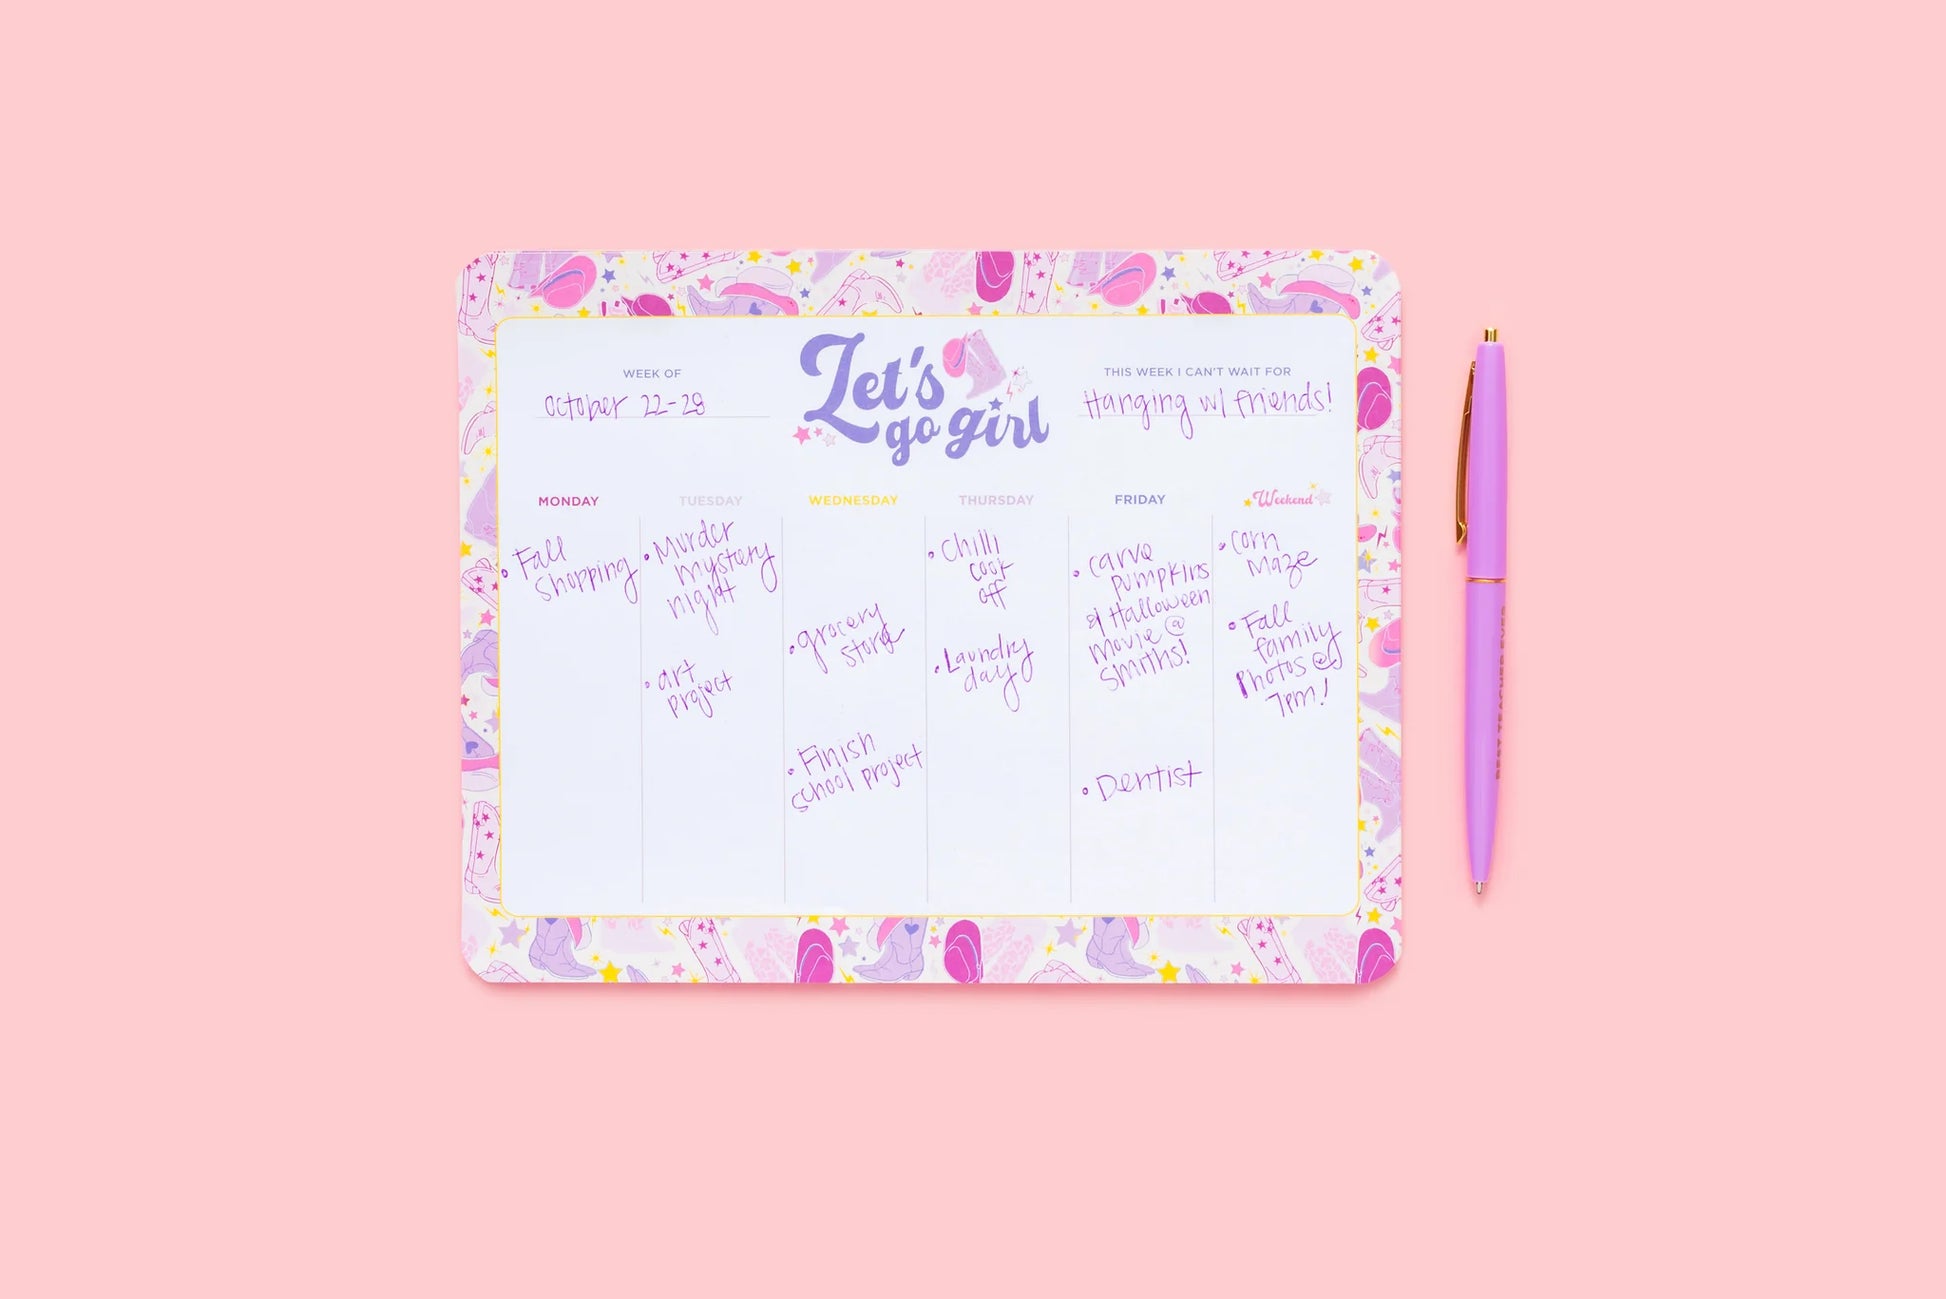 WEEK OF
October 22-28
Let's
go girl
THIS WEEK I CAN'T WAIT FOR
Hanging w/ friends!
MONDAY
• Fall
Shopping
TUESDAY
• Murder
mystery
night
• art
project
WEDNESDAY
• grocery
store
• Finish
school project
THURSDAY
• Chilli
cook
off
• Laundry
day
FRIDAY
• carve
pumpkins
& Halloween
movie @
Smiths!
• Dentist
Weekend
• Corn
Maze
• Fall
family
Photos @
7pm!
BEST TEACHER EVER